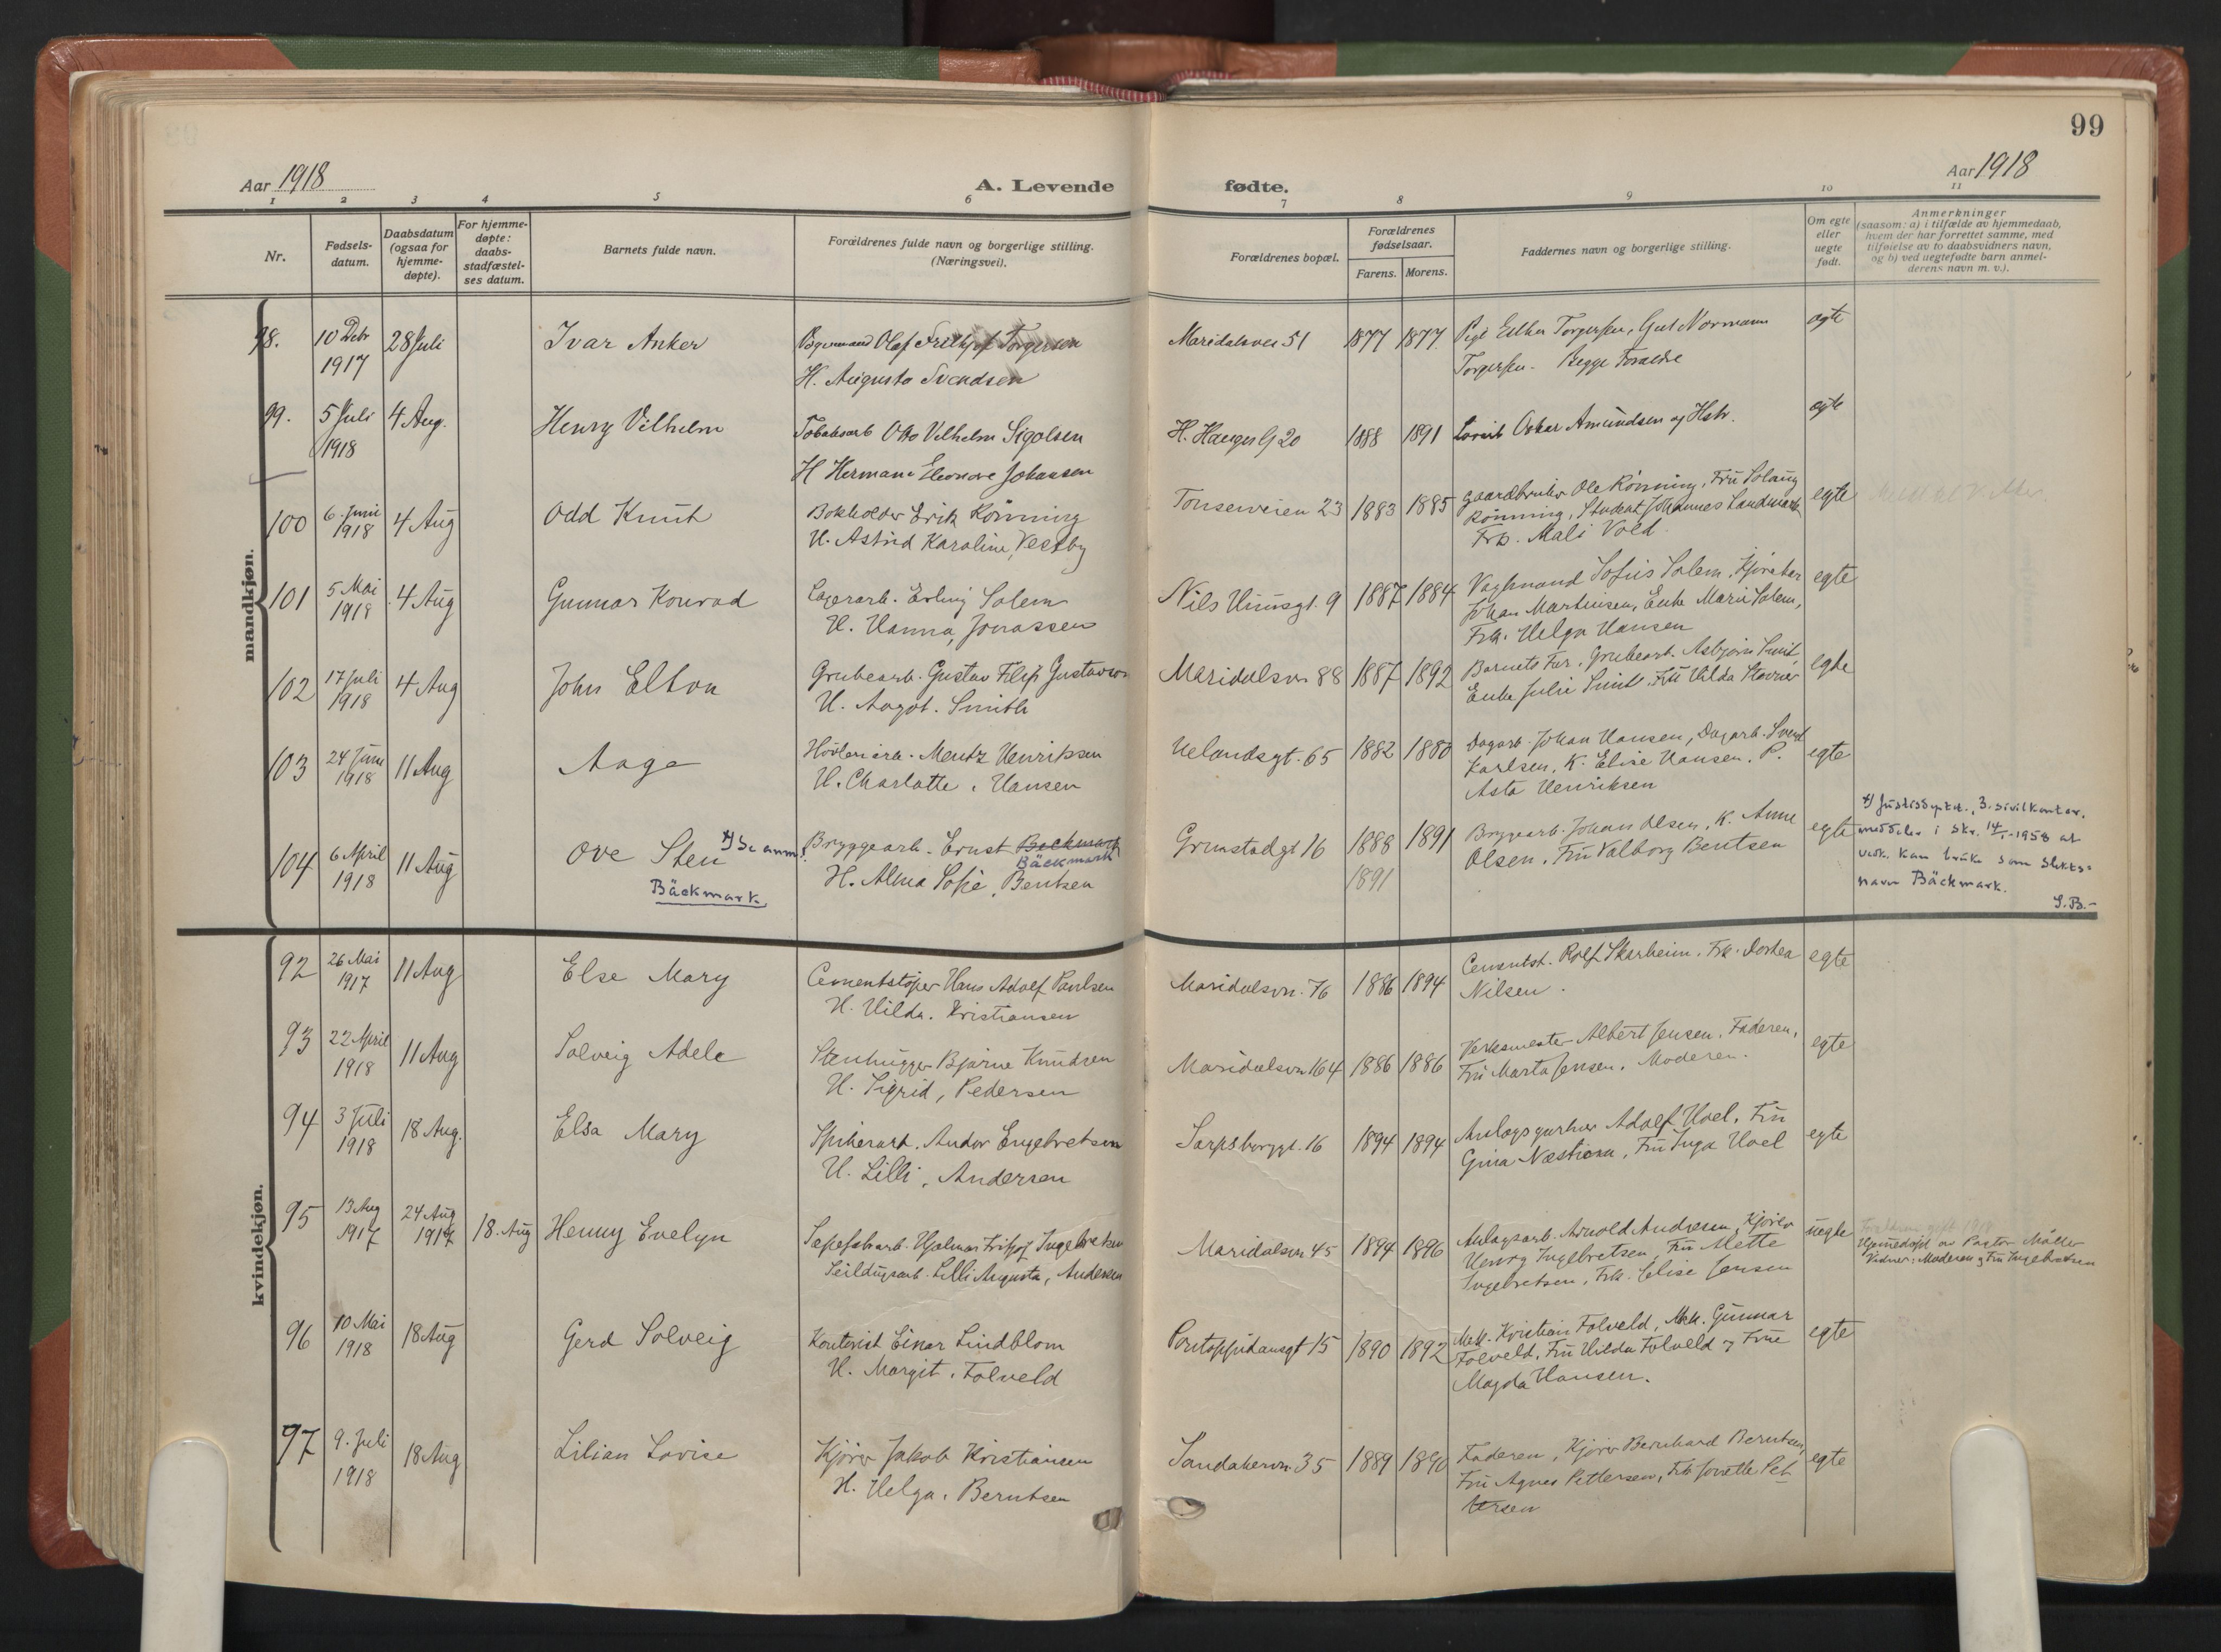 99
Aar 1918
A. Levende
fødte.
Aar 1918
1 2 3 4 5 6 7 8 9 10 11
Nr.
Fødsels-
datum.
Daabsdatum
(ogsaa for
hjemme-
døpte).
For hjemme-
døpte:
daabs-
stadfæstel-
ses datum.
Barnets fulde navn.
Forældrenes fulde navn og borgerlige stilling.
(Næringsvei).
Forældrenes bopæl.
Forældrenes
fødselsaar.
Farens. Morens.
Faddernes navn og borgerlige stilling.
Om egte
eller
uegte
født.
Anmerkninger
(saasom: a) i tilfælde av hjemmedaab,
hvem der har forrettet samme, med
tilføielse av to daabsvidners navn,
og b) ved uegtefødte barn anmel-
derens navn m. v.).
mandkjøn.
98. 10 Debr 28 Juli Ivar Anker Olaf Frithjof Torgersen Maridalsvei 51 1877 1877 Pige Esther Torgersen, Gust Normann egte
1917 H. Augusta Svendsen Torgersen. Begge Forældre
99. 5 Juli 4 Aug. Henry Vilhelm Tobaksarb Otto Vilhelm Sigolsen H. Haugesg 20 1888 1891 Oskar Amundsen og Hstr. egte
1918 H Hermana Eleonore Johansen
100 6. Juni 4 Aug Odd Knut Bokholder Erik Rönning Tonsenveien 23 1883 1885 Gaardbruker Ole Rönning, Fru Solaug egte
1918 H. Astrid Karoline, Vestby Rönning, Student Johannes Landmark
Frk. Mali Vold
101 5 Mai 4 Aug Gunnar Konrad Lagerarb. Erling Solem Nils Huusgt. 9 1887 1884 Vagtmand Sofus Solem, Kjörekar egte
1918 H. Hanna, Jonassen Johan Martinsen, Enke Marie Solem,
Frk. Helga Hansen
102 17 Juli 4 Aug John Elton Grubearb. Gustav Filip Gustavson Maridalsvn 88 1887 1892 Barnets Far, Grubearb. Asbjörn Smit, egte
1918 H. Aagot. Smith Enke Julie Smith. Fru Hilda
103 24 Juni 11 Aug Aage Hövleriarb. Mentz Henriksen Uelandsgt. 65 1882 1880 Dagarb. Johan Hansen, Dagarb. Svend egte
1918 H. Charlotte, Hansen Karlsen, K. Elise Hansen. P.
Asta Henriksen
104 6 April 11 Aug Ove Sten *) Se anm! Bryggearb. Ernst Beckmark Grimstadgt 16 1888 1891 Bryggearb. Johan Olsen, K. Anne egte
Bäckmark
1918 Bäckmark H. Alma Sofie, Bentsen 1891 Olsen, Fru Valborg Bentsen
*) Justisdeptet., 3. sivilkontor.
meddeler i skr. 14/1-1958 at
vedk. kan bruke som slekts-
navn Bäckmark.
S.B.-
kvindekjøn.
92 26 Mai 11 Aug Else Mary Cementstöper Hans Adolf Paulsen Maridalsvn. 76 1886 1894 Cementst. Rolf Skarheim, Frk. Dorthea egte
1917 H. Hilda. Kristiansen Nilsen.
93 22 April 11 Aug Solveig Adele Stenhugger Bjarne Knudsen Maridalsvn 164 1886 1886 Verksmester Albert Jensen. Faderen, egte
1918 H. Sigrid, Pedersen Fru Marta Jensen, Moderen.
94 3 Juli 18 Aug. Elsa Mary Spikerarb. Andor Engebretsen Sarpsborggt. 16 1894 1894 Anlægsgartner Adolf Hoel, Fru egte
1918 H. Lilli, Andersen Gina Næstiena, Fru Inga Hoel
95 13 Aug 24 Aug 18. Aug Henny Evelyn Sæpefabrarb. Hjalmar Fritjof Ingebretsen Maridalsvn 45 1894 1896 Anlægsarb. Arnold Andresen, Kjörer uegte
1917 1917 Seildugsarb. Lilli Augusta, Andersen Henry Ingebretsen, Fru Mette
Ingebretsen, Frk. Elise Jensen
Hjemmedöpt av Pastor Möller
Vidner: Moderen og Fru Ingebretsen
96 10 Mai 18 Aug Gerd Solveig Kontorist Einar Lindblom Pontoppidansgt 15 1890 1892 Mek. Kristian Folveld, Mek. Gunnar egte
1918 H. Margit, Folveld Folveld, Fru Hilda Folveld og Frue
Magda Hansen.
97 9. Juli 18 Aug Lilian Lovise Kjörer Jakob Kristiansen Sandakervn 35 1889 1890 Faderen, Kjörer Bernhard Berntsen, egte
1918 H. Helga. Berntsen Fru Agnes Pettersen, Frk Pet
tersen